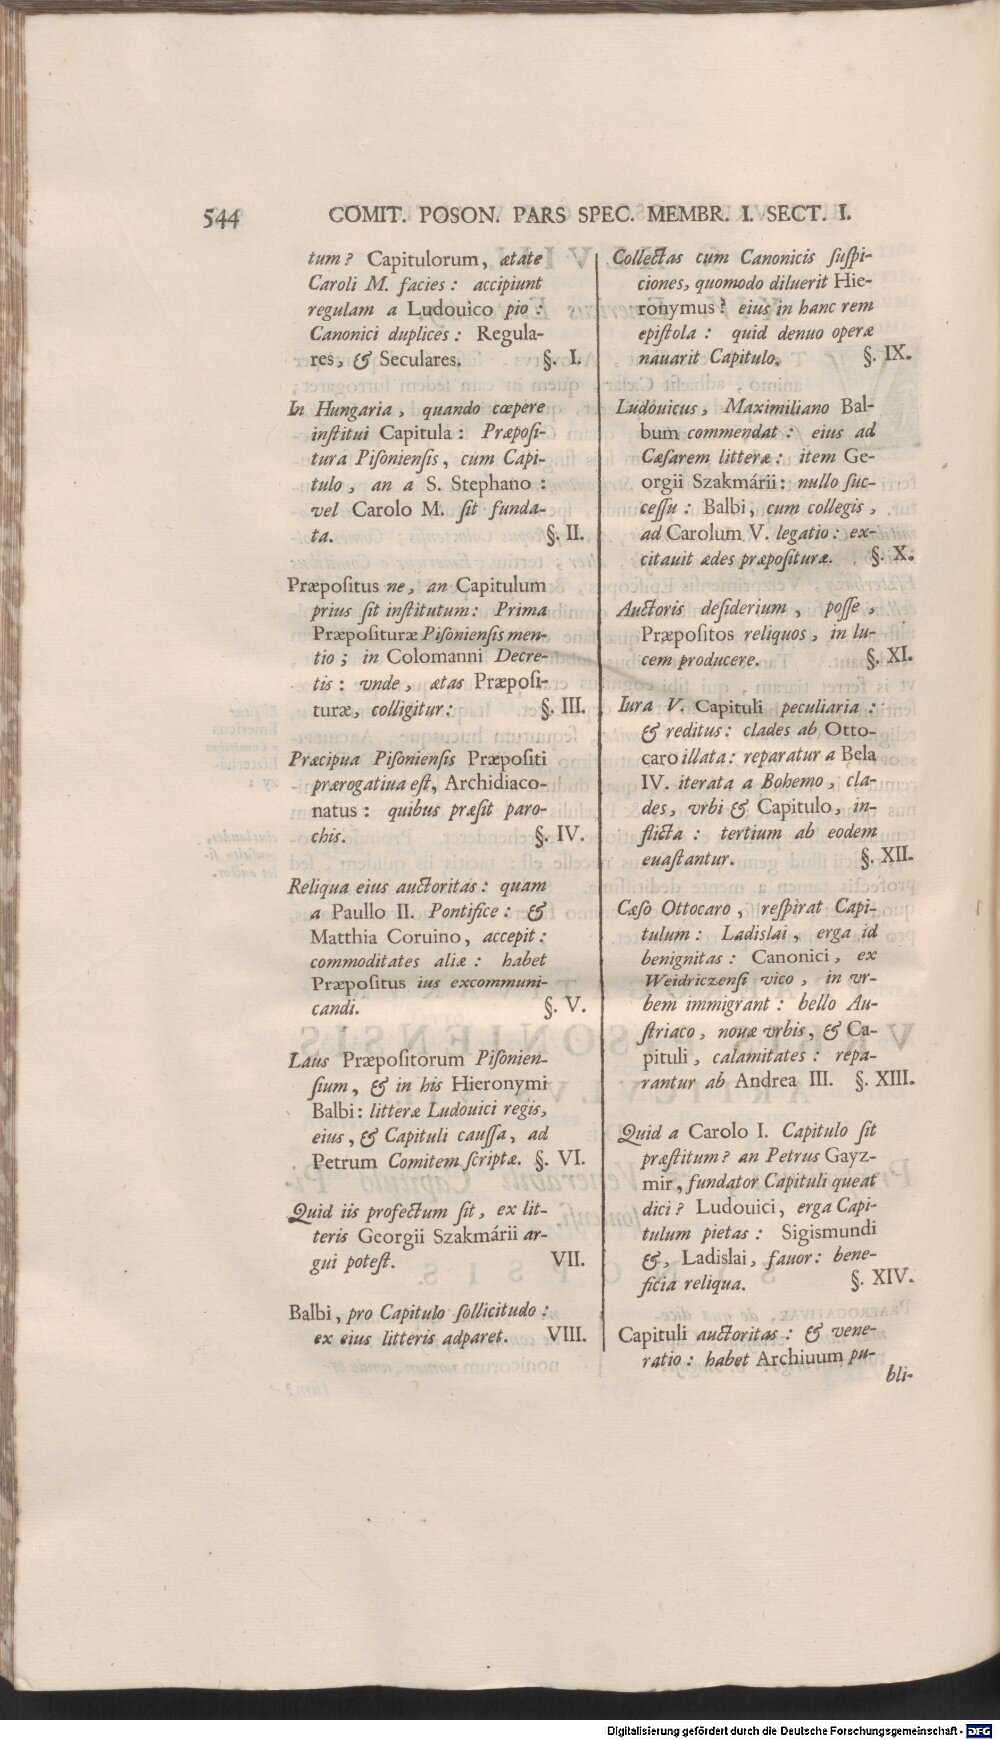 544 COMIT. POSON. PARS SPEC. MEMBR. I. SECT. I.
tum? Capitulorum, ætate
Caroli M. facies: accipiunt
regulam a Ludouico pio:
Canonici duplices: Regula-
res, & Seculares. §. I.
In Hungaria, quando cœpere
institui Capitula: Præposi-
tura Pisoniensis, cum Capi-
tulo, an a S. Stephano:
vel Carolo M. sit funda-
ta. §. II.
Præpositus ne, an Capitulum
prius sit institutum: Prima
Præposituræ Pisoniensis men-
tio; in Colomanni Decre-
tis: vnde, ætas Præposi-
turæ, colligitur: §. III.
Præcipua Pisoniensis Præpositi
prærogatiua est, Archidiaco-
natus: quibus præsit paro-
chis. §. IV.
Reliqua eius auctoritas: quam
a Paullo II. Pontifice: &
Matthia Coruino, accepit:
commoditates aliæ: habet
Præpositus ius excommuni-
candi. §. V.
Laus Præpositorum Pisonien-
sium, & in his Hieronymi
Balbi: litteræ Ludouici regis,
eius, & Capituli caussa, ad
Petrum Comitem scriptæ. §. VI.
Quid iis profectum sit, ex lit-
teris Georgii Szakmárii ar-
gui potest. VII.
Balbi, pro Capitulo sollicitudo:
ex eius litteris adparet. VIII.
Collectas cum Canonicis suspi-
ciones, quomodo diluerit Hie-
ronymus? eius in hanc rem
epistola: quid denuo operæ
nauarit Capitulo. §. IX.
Ludouicus, Maximiliano Bal-
bum commendat: eius ad
Cæsarem litteræ: item Ge-
orgii Szakmárii: nullo suc-
cessu: Balbi, cum collegis,
ad Carolum V. legatio: ex-
citauit ædes præposituræ. §. X.
Auctoris desiderium, posse,
Præpositos reliquos, in lu-
cem producere. §. XI.
Iura V. Capituli peculiaria:
& reditus: clades ab Otto-
caro illata: reparatur a Bela
IV. iterata a Bohemo, cla-
des, vrbi & Capitulo, in-
flicta: tertium ab eodem
euastantur. §. XII.
Cæso Ottocaro, respirat Capi-
tulum: Ladislai, erga id
benignitas: Canonici, ex
Weidriczensi vico, in vr-
bem immigrant: bello Au-
striaco, nouæ vrbis, & Ca-
pituli, calamitates: repa-
rantur ab Andrea III. §. XIII.
Quid a Carolo I. Capitulo sit
præstitum? an Petrus Gayz-
mir, fundator Capituli queat
dici? Ludouici, erga Capi-
tulum pietas: Sigismundi
&, Ladislai, fauor: bene-
ficia reliqua. §. XIV.
Capituli auctoritas: & vene-
ratio: habet Archiuum pu-
bli-
Digitalisierung gefördert durch die Deutsche Forschungsgemeinschaft - DFG